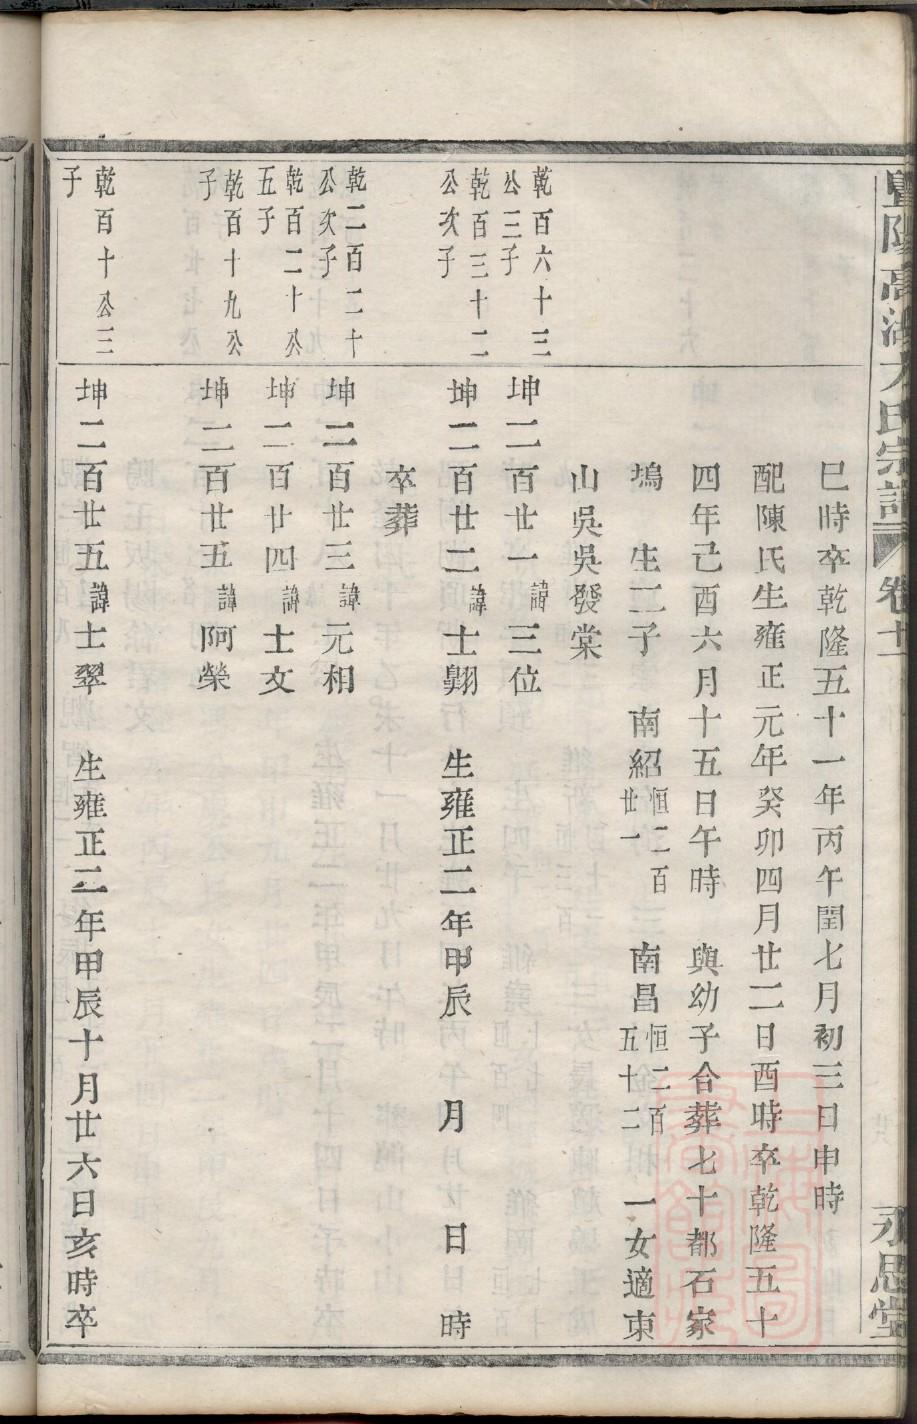 暨陽高湖方氏宗譜 卷十二 永思堂
巳時卒乾隆五十一年丙午閏七月初三日申時
配陳氏生雍正元年癸卯四月廿二日酉時卒乾隆五十
四年己酉六月十五日午時 與幼子合葬七十都石家
塢 生二子 南紹恒二百廿一 南昌恒二百五十二 一女適東
山吳吳發棠
乾百六十三公三子 坤二百廿一諱三位
乾百三十二公次子 坤二百廿二諱士翺 生雍正二年甲辰 月 日 時
卒葬
乾二百二十公次子 坤二百廿三諱元相
乾百二十公五子 坤二百廿四諱士文
乾百十九公子 坤二百廿五諱阿榮
乾百十公三子 坤二百廿五諱士翠 生雍正二年甲辰十月廿六日亥時卒